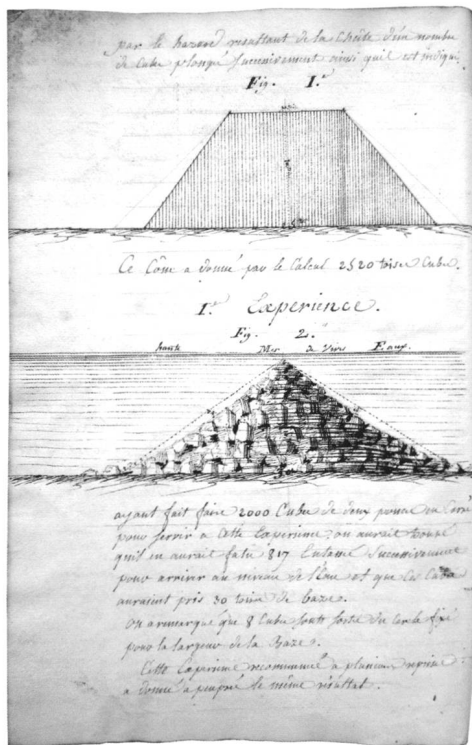 par le hazard resultant de la Chûte d'un nombre
de Cube plongé successivement ainsi quil est indiqué
Fig. I.re
Ce Cône a donné par le Calcul 2520 toises Cube.
I.re Experience.
Fig. 2.
haute Mer de Vives Eaux.
ayant fait faire 2000 Cube de deux pouce en
pour servir a Cette Experience, on aurait trouvé
quil en aurait falu 817 Entassé Successivement
pour arriver au niveau de l'Eau et que les Cube
auraient pris 30 toise de baze.
on a remarqué que 8 Cube sont sorté du Cercle fixé
pour la largeur de la Baze.
Cette Experience recommencé a plusieurs reprise
a donné a peuprè le même résultat.